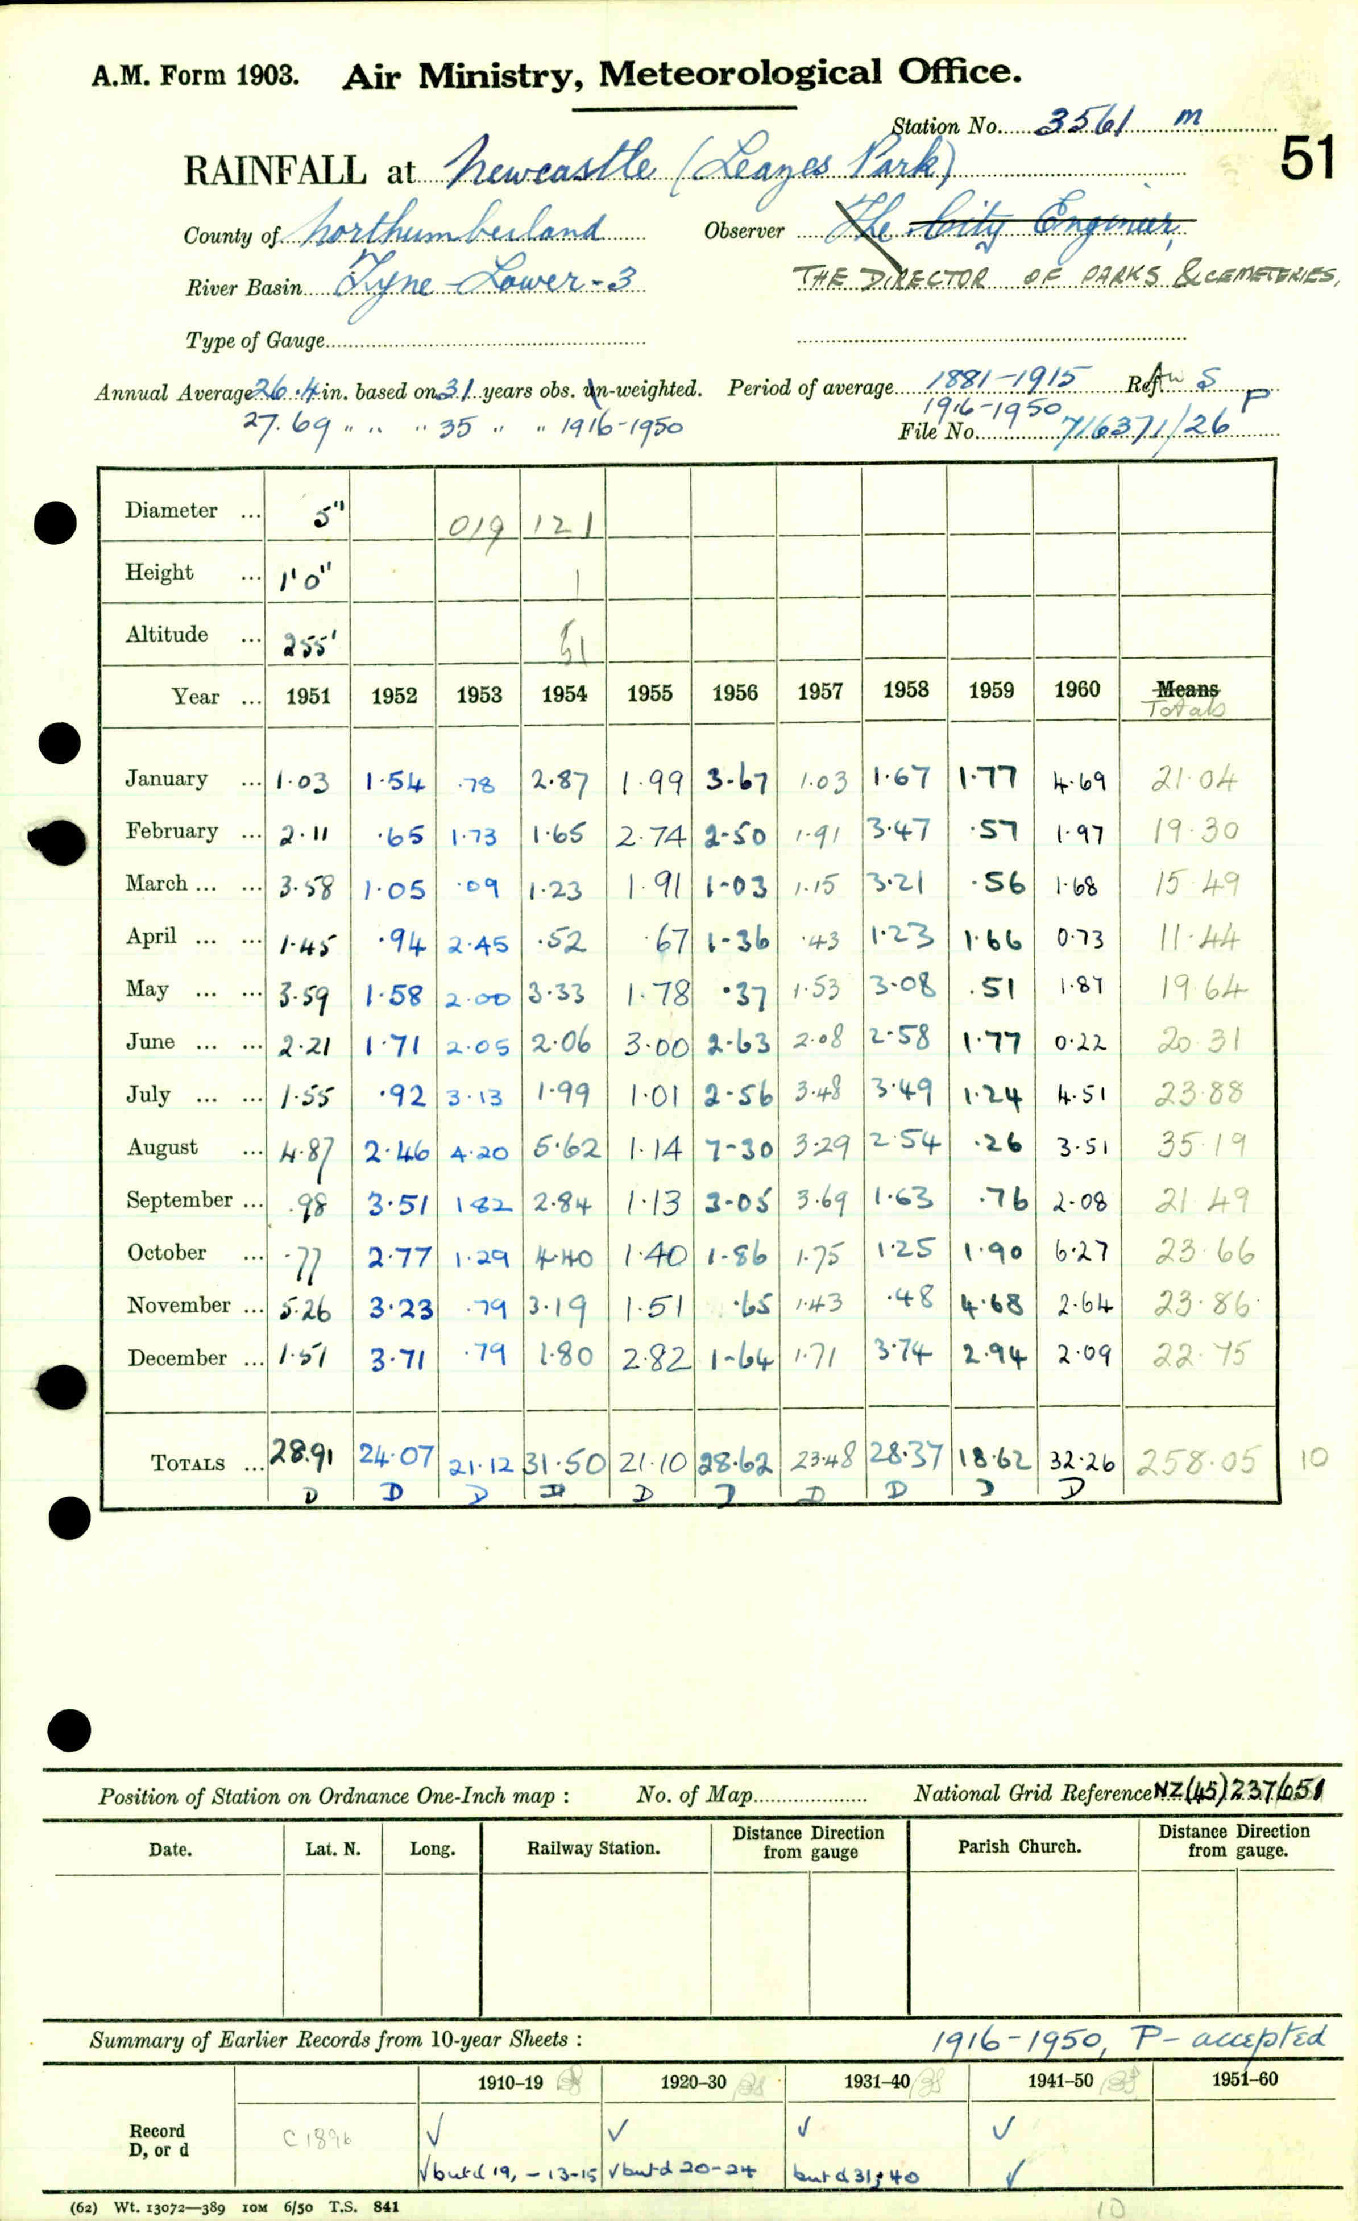 A.M. Form 1903. Air Ministry, Meteorological Office.
Station No. 3561 m
51
RAINFALL at Newcastle (Leazes Park)
County of Northumberland Observer The City Engineer,
River Basin Tyne Lower-3 THE DIRECTOR OF PARKS & CEMETERIES,
Type of Gauge
Annual Average 26.4 in. based on 31 years obs. un-weighted. Period of average 1881-1915 Ref. S
1916-1950 P
27.69 " " " 35 " " 1916-1950 File No. 716371/26
Diameter ... 5" 019 121
Height ... 1'0" 1
Altitude ... 255' 51
Year ... 1951 1952 1953 1954 1955 1956 1957 1958 1959 1960 Means Totals
January ... 1.03 1.54 .78 2.87 1.99 3.67 1.03 1.67 1.77 4.69 21.04
February ... 2.11 .65 1.73 1.65 2.74 2.50 1.91 3.47 .57 1.97 19.30
March ... ... 3.58 1.05 .09 1.23 1.91 1.03 1.15 3.21 .56 1.68 15.49
April ... ... 1.45 .94 2.45 .52 .67 1.36 .43 1.23 1.66 0.73 11.44
May ... ... 3.59 1.58 2.00 3.33 1.78 .37 1.53 3.08 .51 1.87 19.64
June ... ... 2.21 1.71 2.05 2.06 3.00 2.63 2.08 2.58 1.77 0.22 20.31
July ... ... 1.55 .92 3.13 1.99 1.01 2.56 3.48 3.49 1.24 4.51 23.88
August ... 4.87 2.46 4.20 5.62 1.14 7.30 3.29 2.54 .26 3.51 35.19
September ... .98 3.51 1.82 2.84 1.13 3.05 3.69 1.63 .76 2.08 21.49
October ... .77 2.77 1.29 4.40 1.40 1.86 1.75 1.25 1.90 6.27 23.66
November ... 5.26 3.23 .79 3.19 1.51 .65 1.43 .48 4.68 2.64 23.86
December ... 1.51 3.71 .79 1.80 2.82 1.64 1.71 3.74 2.94 2.09 22.75
TOTALS ... 28.91 24.07 21.12 31.50 21.10 28.62 23.48 28.37 18.62 32.26 258.05 10
D D D D D D D D D D
Position of Station on Ordnance One-Inch map : No. of Map National Grid Reference NZ(45)237651
Date. Lat. N. Long. Railway Station. Distance from gauge Direction Parish Church. Distance Direction from gauge.
Summary of Earlier Records from 10-year Sheets : 1916-1950, P- accepted
1910-19 1920-30 1931-40 1941-50 1951-60
Record D, or d C1896 ✓ ✓ ✓ ✓
✓ but d 19, -13-15 ✓ but d 20-24 but d 31 & 40 ✓
(62) Wt. 13072—389 10M 6/50 T.S. 841
10